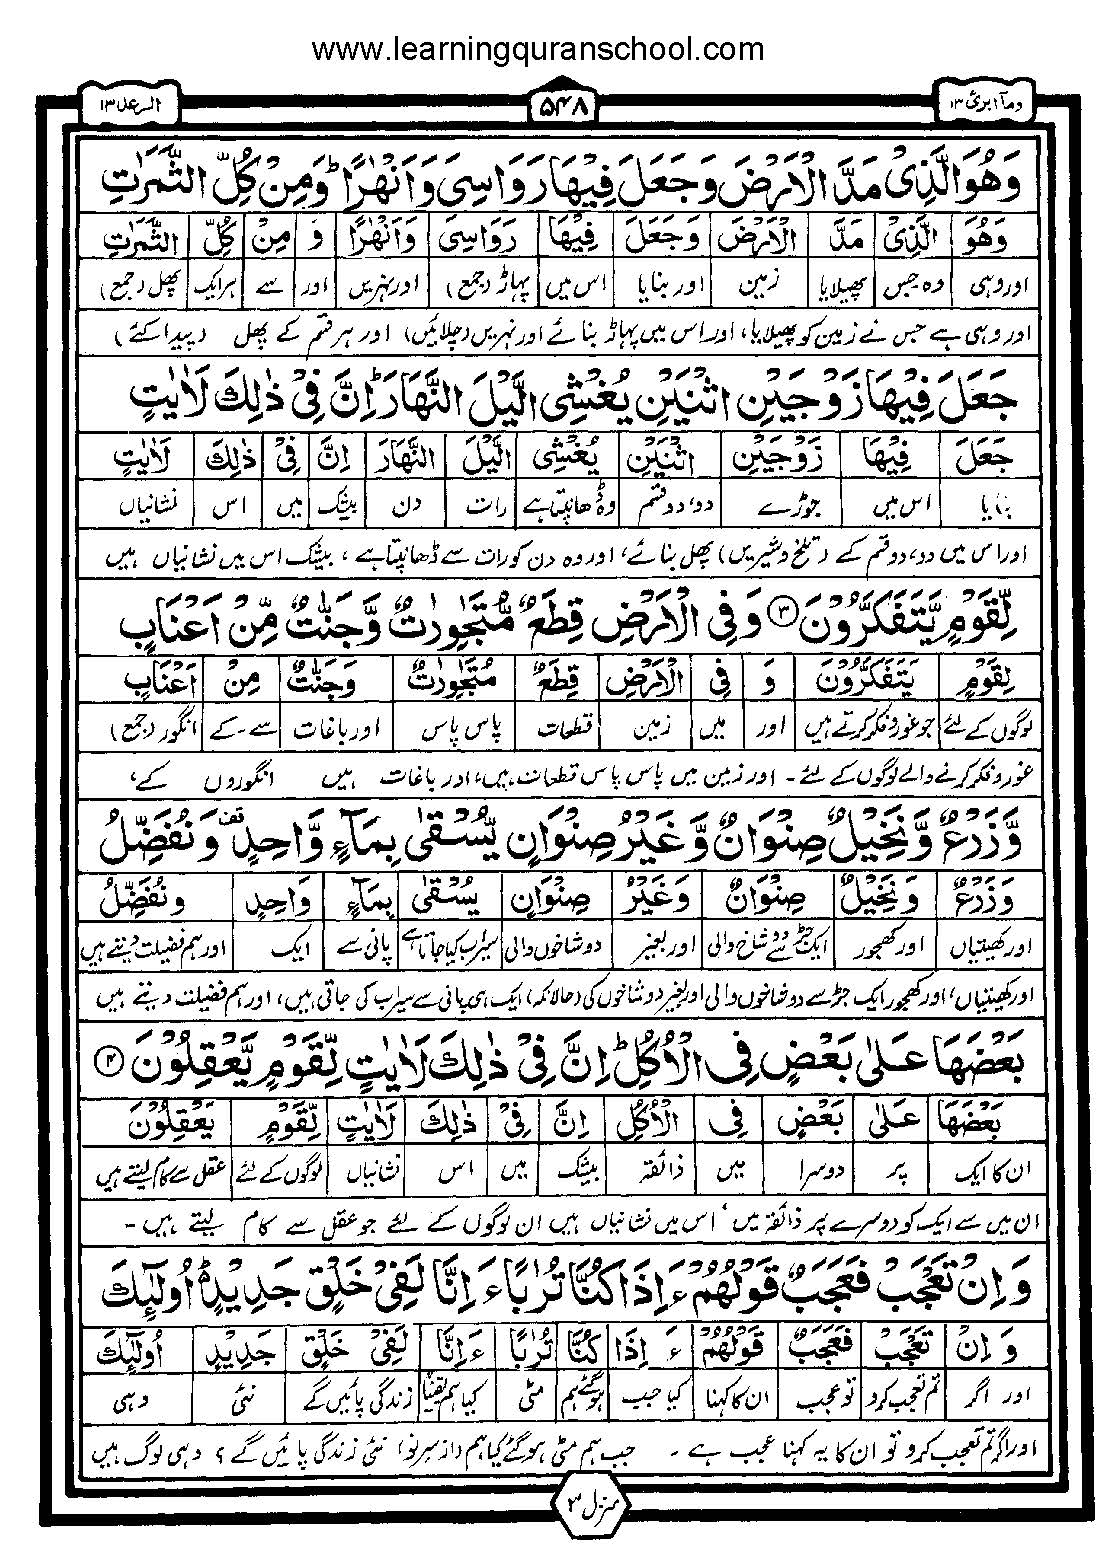 www.learningquranschool.com
ومآ ابرئ ۱۳
۵۴۸
الرعد ۱۳
وَهُوَ الَّذِیْ مَدَّ الْاَرْضَ وَجَعَلَ فِیْهَا رَوَاسِیَ وَاَنْهٰرًا ؕ وَمِنْ كُلِّ الثَّمَرٰتِ
وَهُوَ الَّذِیْ مَدَّ الْاَرْضَ وَجَعَلَ فِیْهَا رَوَاسِیَ وَاَنْهٰرًا وَ مِنْ كُلِّ الثَّمَرٰتِ
اور وہی وہ جس پھیلایا زمین اور بنایا اس میں پہاڑ (جمع) اور نہریں اور سے ہر ایک پھل (جمع)
اور وہی ہے جس نے زمین کو پھیلایا، اور اس میں پہاڑ بنائے اور نہریں (چلائیں) اور ہر قسم کے پھل (پیدا کئے)
جَعَلَ فِیْهَا زَوْجَیْنِ اثْنَیْنِ یُغْشِی الَّیْلَ النَّهَارَ ؕ اِنَّ فِیْ ذٰلِكَ لَاٰیٰتٍ
جَعَلَ فِیْهَا زَوْجَیْنِ اثْنَیْنِ یُغْشِی الَّیْلَ النَّهَارَ اِنَّ فِیْ ذٰلِكَ لَاٰیٰتٍ
بنایا اس میں جوڑے دو، دو قسم وہ ڈھانپتا ہے رات دن بیشک میں اس نشانیاں
اور اس میں دو، دو قسم کے (تلخ و شیریں) پھل بنائے، اور وہ دن کو رات سے ڈھانپتا ہے، بیشک اس میں نشانیاں ہیں
لِّقَوْمٍ یَّتَفَكَّرُوْنَ ۝۳ وَفِی الْاَرْضِ قِطَعٌ مُّتَجٰوِرٰتٌ وَّجَنّٰتٌ مِّنْ اَعْنَابٍ
لِقَوْمٍ یَتَفَكَّرُوْنَ وَ فِی الْاَرْضِ قِطَعٌ مُتَجٰوِرٰتٌ وَجَنّٰتٌ مِنْ اَعْنَابٍ
لوگوں کے لئے جو غور و فکر کرتے ہیں اور میں زمین قطعات پاس پاس اور باغات سے - کے انگور (جمع)
غور و فکر کرنے والے لوگوں کے لئے - اور زمین میں پاس پاس قطعات ہیں، اور باغات ہیں انگوروں کے،
وَّزَرْعٌ وَّنَخِیْلٌ صِنْوَانٌ وَّغَیْرُ صِنْوَانٍ یُّسْقٰی بِمَآءٍ وَّاحِدٍ قف وَنُفَضِّلُ
وَزَرْعٌ وَنَخِیْلٌ صِنْوَانٌ وَغَیْرُ صِنْوَانٍ یُسْقٰی بِمَآءٍ وَاحِدٍ وَنُفَضِّلُ
اور کھیتیاں اور کھجور ایک جڑ سے دو شاخ والی اور بغیر دو شاخوں والی سیراب کیا جاتا ہے پانی سے ایک اور ہم فضیلت دیتے ہیں
اور کھیتیاں، اور کھجور ایک جڑ سے دو شاخوں والی اور بغیر دو شاخوں کی (حالانکہ) ایک ہی پانی سے سیراب کی جاتی ہیں، اور ہم فضیلت دیتے ہیں
بَعْضَهَا عَلٰی بَعْضٍ فِی الْاُكُلِ ؕ اِنَّ فِیْ ذٰلِكَ لَاٰیٰتٍ لِّقَوْمٍ یَّعْقِلُوْنَ ۝۴
بَعْضَهَا عَلٰی بَعْضٍ فِی الْاُكُلِ اِنَّ فِیْ ذٰلِكَ لَاٰیٰتٍ لِّقَوْمٍ یَعْقِلُوْنَ
ان کا ایک پر دوسرا میں ذائقہ بیشک میں اس نشانیاں لوگوں کے لئے عقل سے کام لیتے ہیں
ان میں سے ایک کو دوسرے پر ذائقہ میں، اس میں نشانیاں ہیں ان لوگوں کے لئے جو عقل سے کام لیتے ہیں -
وَاِنْ تَعْجَبْ فَعَجَبٌ قَوْلُهُمْ ءَاِذَا كُنَّا تُرٰبًا ءَاِنَّا لَفِیْ خَلْقٍ جَدِیْدٍ ؕ اُولٰٓئِكَ
وَ اِنْ تَعْجَبْ فَعَجَبٌ قَوْلُهُمْ ءَ اِذَا كُنَّا تُرٰبًا ءَاِنَّا لَفِیْ خَلْقٍ جَدِیْدٍ اُولٰٓئِكَ
اور اگر تم تعجب کرو تو عجب ان کا کہنا کیا جب ہو گئے ہم مٹی کیا ہم یقیناً زندگی پائیں گے نئی وہی
اور اگر تم تعجب کرو تو ان کا یہ کہنا عجب ہے - جب ہم مٹی ہو گئے کیا ہم (از سر نو) نئی زندگی پائیں گے؟ وہی لوگ ہیں
منزل ۳